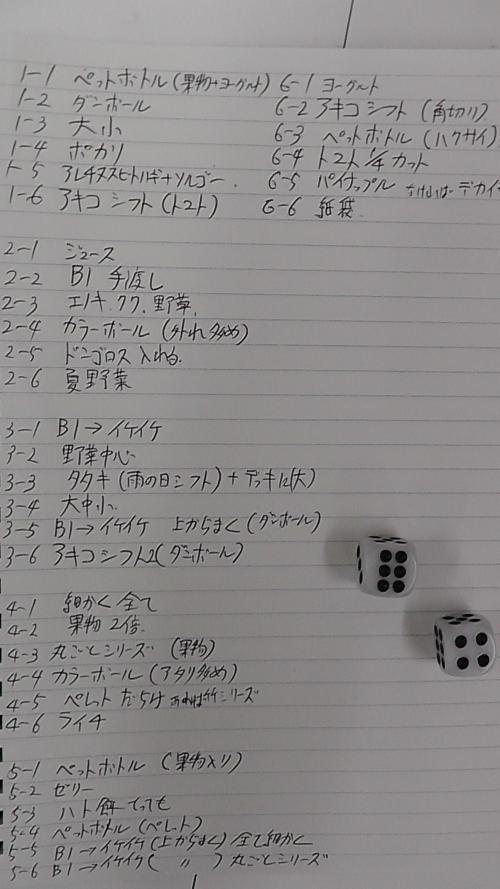 1-1 ペットボトル(果物+ヨーグルト)
1-2 ダンボール
1-3 大小
1-4 ポカリ
1-5 アレチヌスビトハギ+ソルゴー
1-6 アキコシフト(トマト)
6-1 ヨーグルト
6-2 アキコシフト(角切り)
6-3 ペットボトル(ハクサイ)
6-4 トマト 1/4 カット
6-5 パイナップル なければデカイ
6-6 紙袋
2-1 ジュース
2-2 B1 手渡し
2-3 エノキ、クワ、野草
2-4 カラーボール(外れ多め)
2-5 ドンゴロス入れる
2-6 夏野菜
3-1 B1→イケイケ
3-2 野草中心
3-3 タタキ(雨の日シフト)+デッキに(大)
3-4 大中小
3-5 B1→イケイケ 上からまく(ダンボール)
3-6 アキコシフト2(ダンボール)
4-1 細かく全て
4-2 果物2倍
4-3 丸ごとシリーズ(果物)
4-4 カラーボール(アタリ多め)
4-5 ペレットだらけ あれば竹シリーズ
4-6 ライチ
5-1 ペットボトル(果物入り)
5-2 ゼリー
5-3 ハト餌
5-4 ペットボトル(ペレット)
5-5 B1→イケイケ(上からまく)全て細かく
5-6 B1→イケイケ( 〃 )丸ごとシリーズ